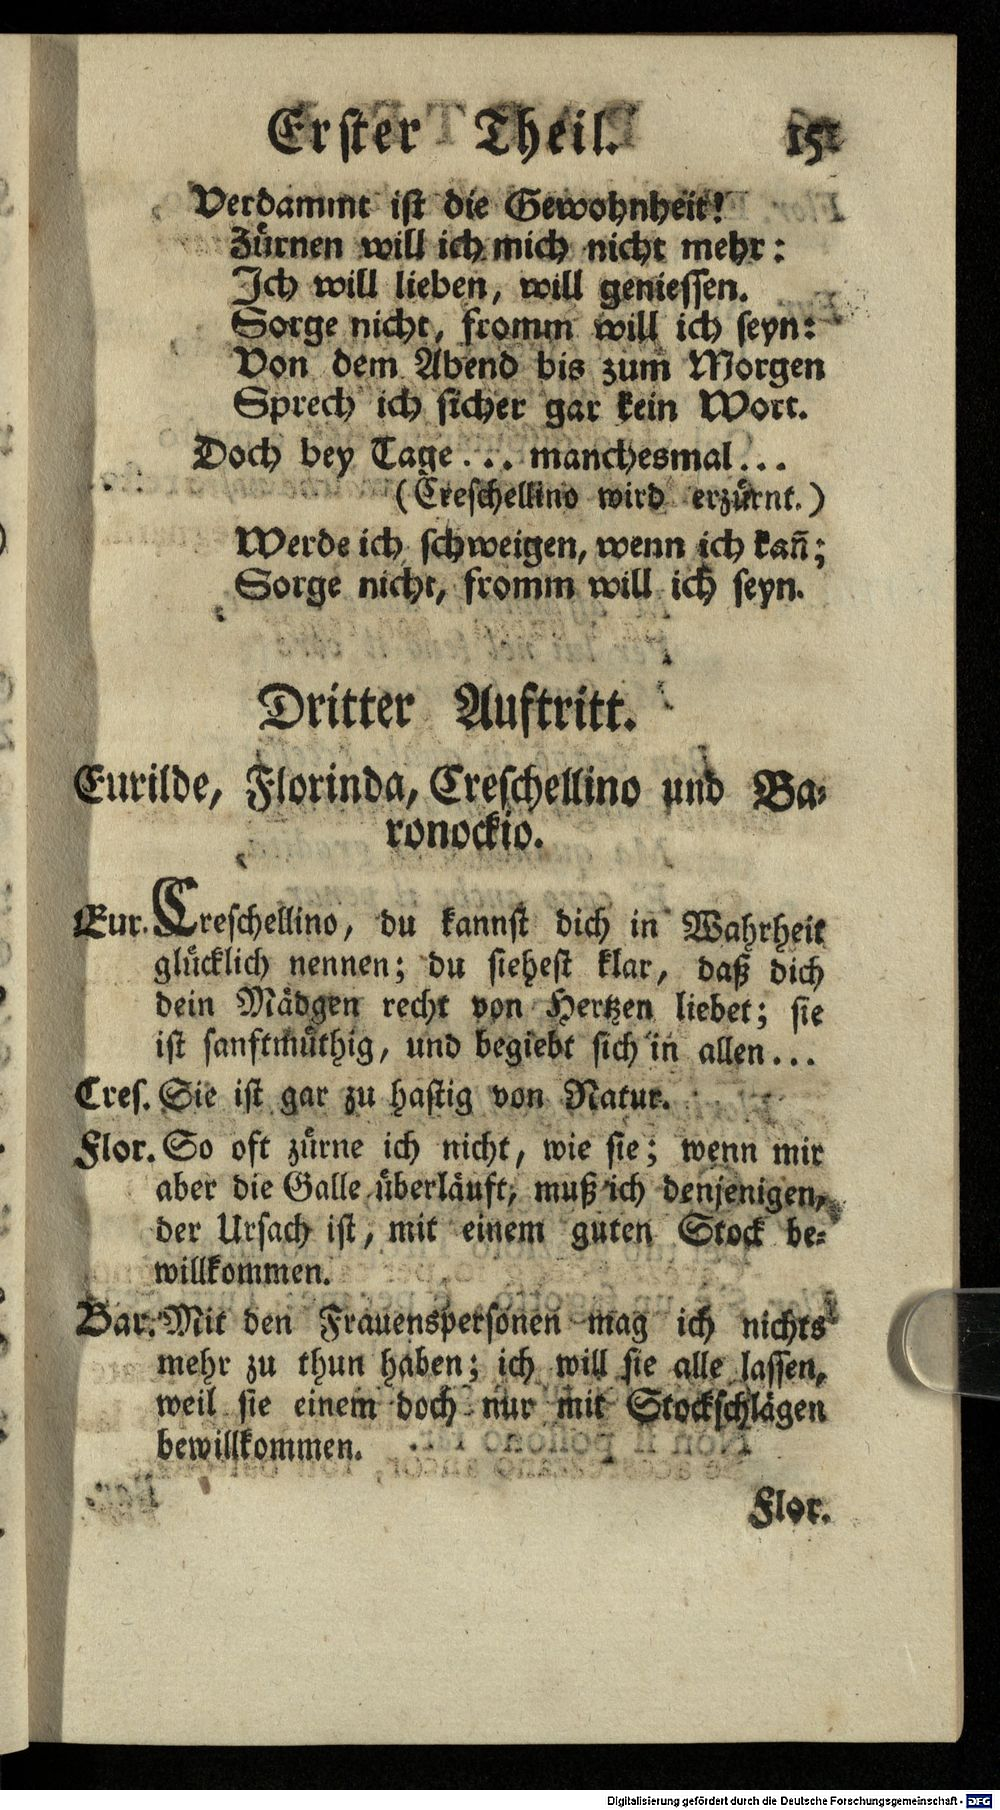 Erster Theil. 15
Verdammt ist die Gewohnheit!
Zürnen will ich mich nicht mehr:
Ich will lieben, will geniessen.
Sorge nicht, fromm will ich seyn:
Von dem Abend bis zum Morgen
Sprech ich sicher gar kein Wort.
Doch bey Tage... manchesmal...
(Creschellino wird erzürnt.)
Werde ich schweigen, wenn ich kañ;
Sorge nicht, fromm will ich seyn.
Dritter Auftritt.
Eurilde, Florinda, Creschellino und Ba-
ronockio.
Eur. Creschellino, du kannst dich in Wahrheit
glücklich nennen; du siehest klar, daß dich
dein Mädgen recht von Hertzen liebet; sie
ist sanftmüthig, und begiebt sich in allen...
Cres. Sie ist gar zu hastig von Natur.
Flor. So oft zürne ich nicht, wie sie; wenn mir
aber die Galle überläuft, muß ich denjenigen,
der Ursach ist, mit einem guten Stock be-
willkommen.
Bar. Mit den Frauenspersonen mag ich nichts
mehr zu thun haben; ich will sie alle lassen,
weil sie einem doch nur mit Stockschlägen
bewillkommen.
Flor.
Digitalisierung gefördert durch die Deutsche Forschungsgemeinschaft - DFG